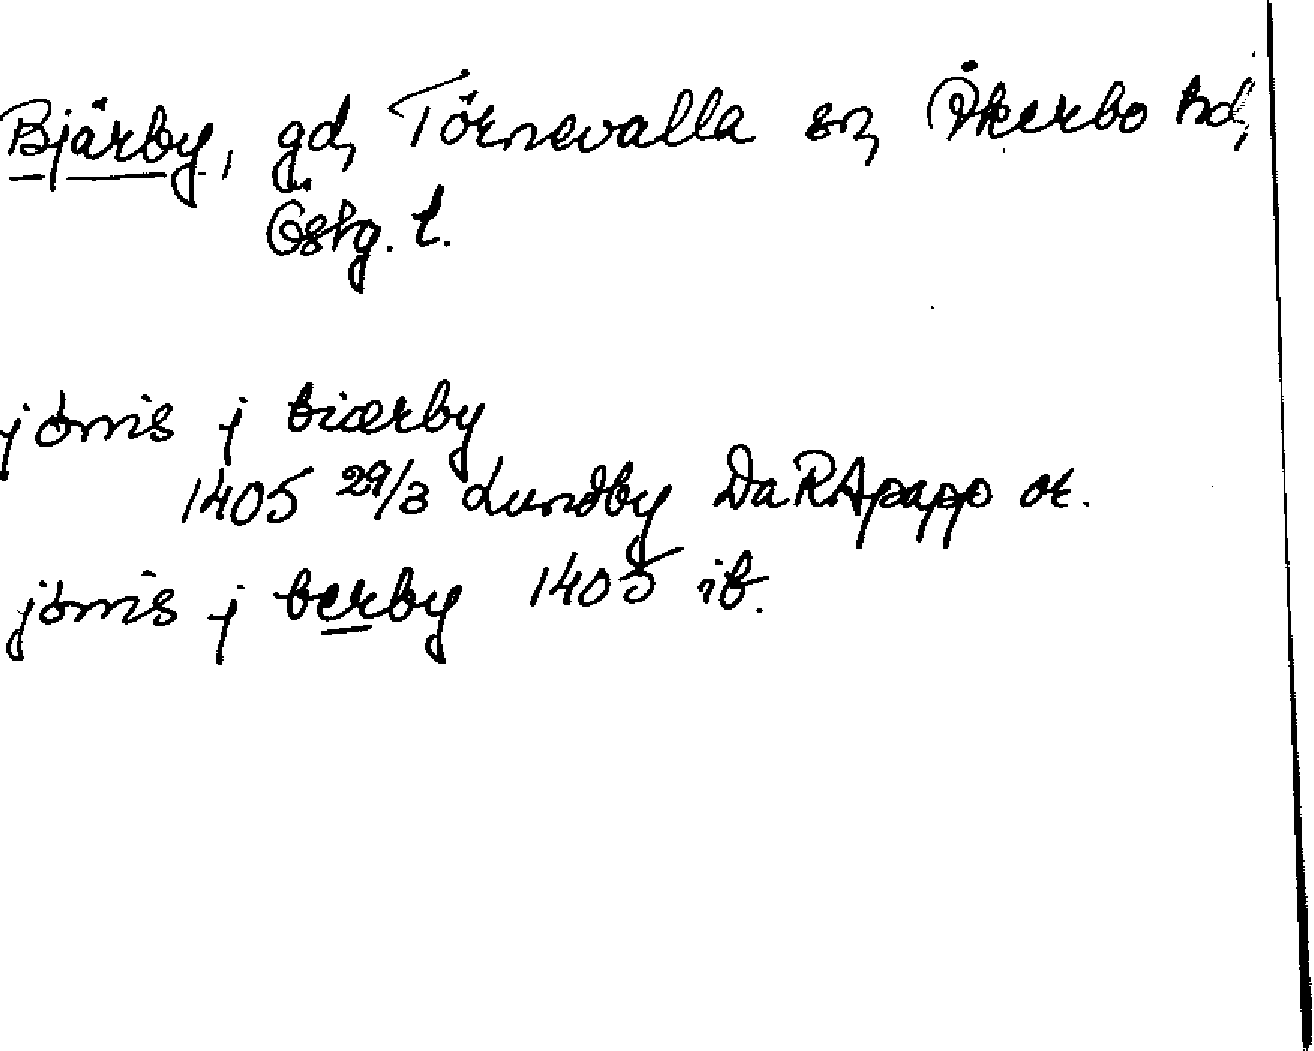 Bjärby, gd, Törnevalla sn, Åkerbo hd,
Östg. l.
jönis j biærby
1405 29/3 Lundby DaRApapp or.
jönis j berby 1405 ib.